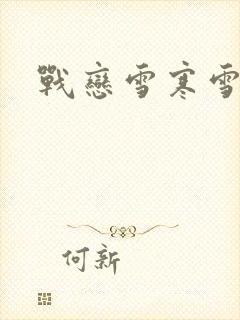 戰戀雪寒雪
何新